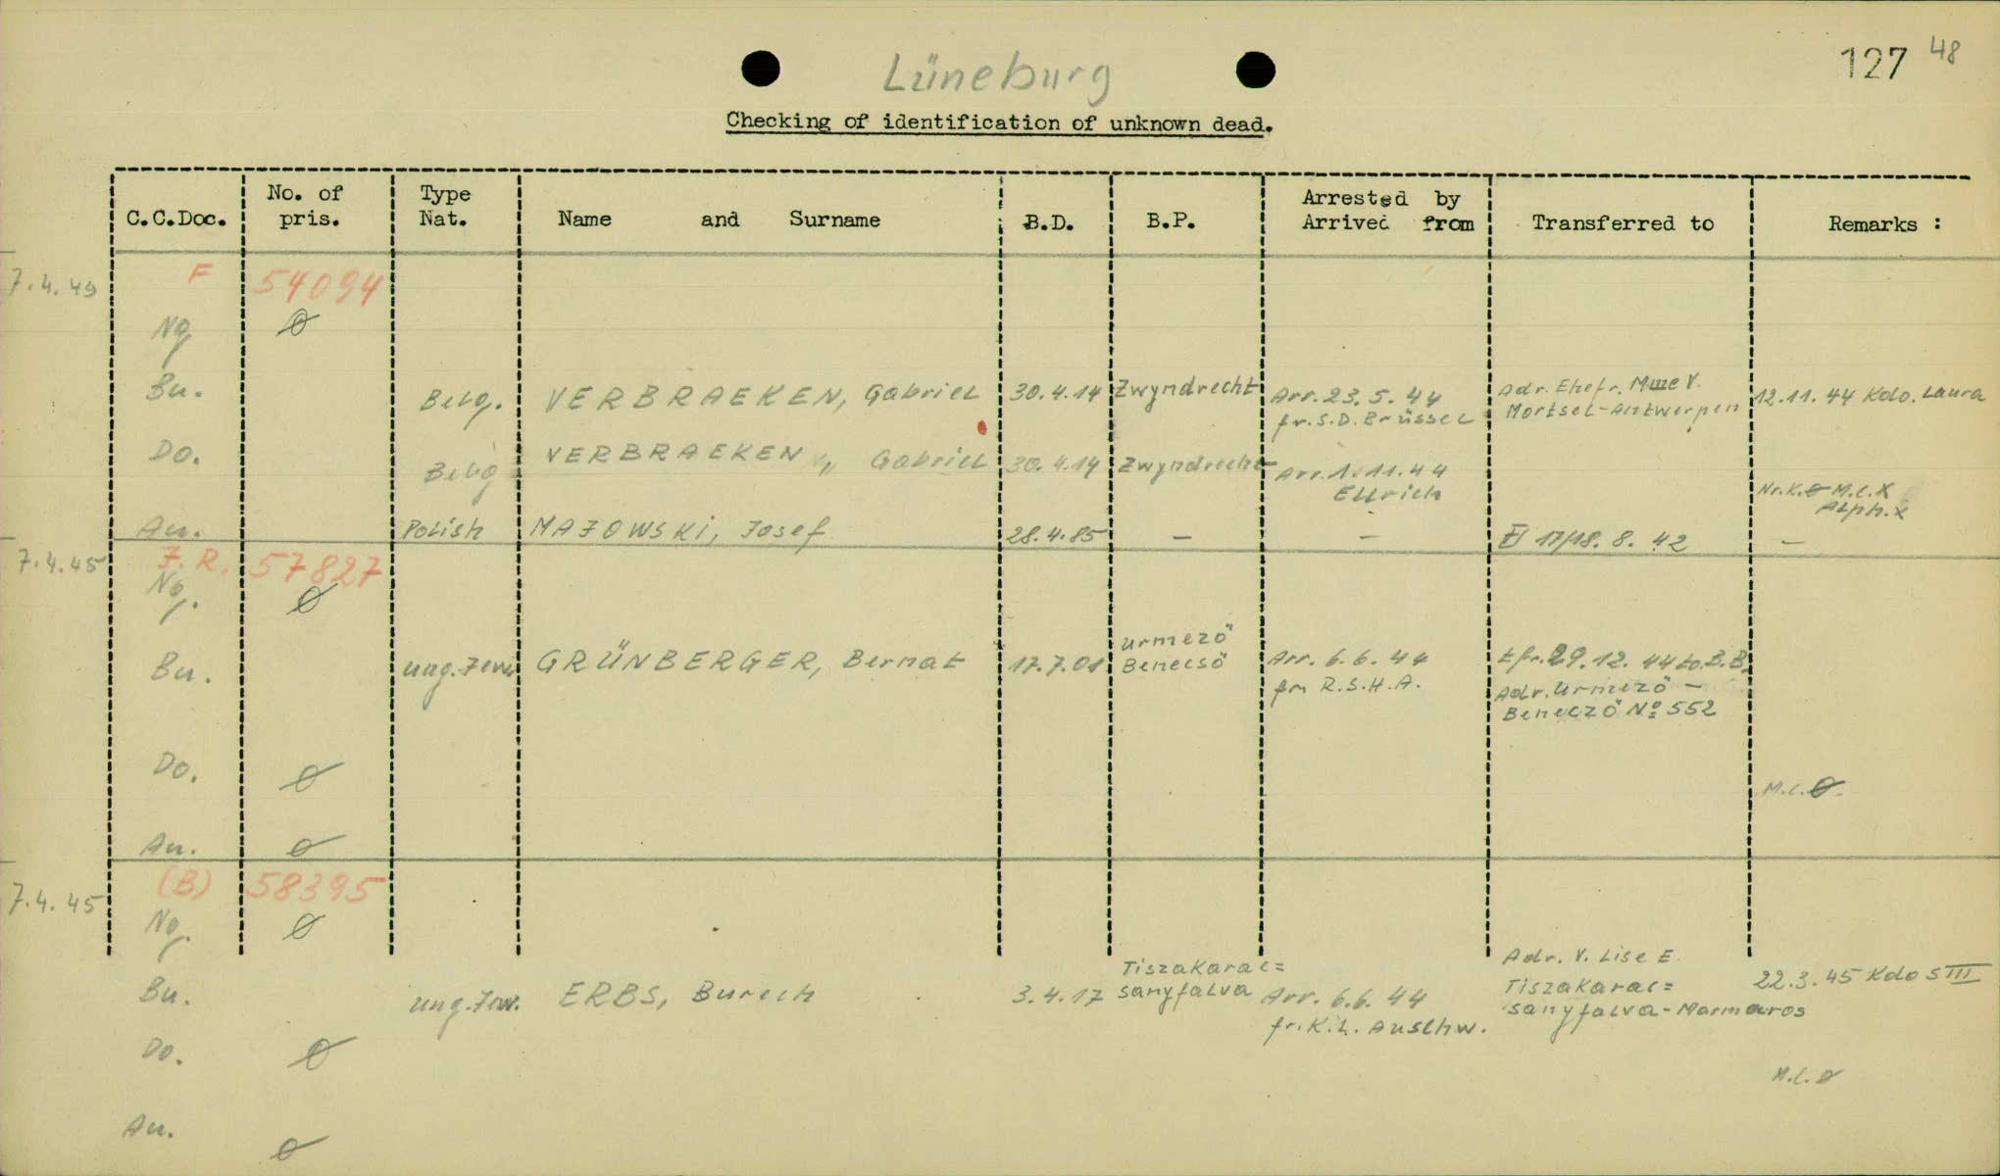 Lüneburg
127 48
Checking of identification of unknown dead.
C.C.Doc. No. of pris. Type Nat. Name and Surname B.D. B.P. Arrested by Arrived from Transferred to Remarks :
7.4.49 F 54094
Ng ∅
Bu. Belg. VERBRAEKEN, Gabriel 30.4.14 Zwyndrecht Arr. 23.5.44 Adr. Ehefr. Mme V. 12.11.44 Kdo. Laura
fr. S.D. Brüssel Mortsel-Antwerpen
Do. Belg VERBRAEKEN, Gabriel 30.4.14 Zwyndrecht Arr. 1.11.44
Ellrich Nr.K.∅ M.C.X
Alph.X
Au. Polish MAJOWSKi, Josef 28.4.85 – – 17/18.8.42 –
7.4.45 F.R. 57827
Ng. ∅
Bu. ung.Jew GRÜNBERGER, Bernat 17.7.01 Urmezö Benecsö Arr. 6.6.44 tfr. 29.12.44 to B.B.
fm R.S.H.A. Adr. Urmezö –
Beneczö Nº 552
Do. ∅ M.C.∅
Au. ∅
7.4.45 (B) 58395
Ng. ∅
Bu. ung.Jew. ERBS, Burech 3.4.17 Tiszakarac= sanyfalva Arr. 6.6.44 Adr. V. Lise E. 22.3.45 Kdo SIII
fr. K.L. Auschw. Tiszakarac=
sanyfalva-Marmaros
Do. ∅ M.C.∅
Au. ∅